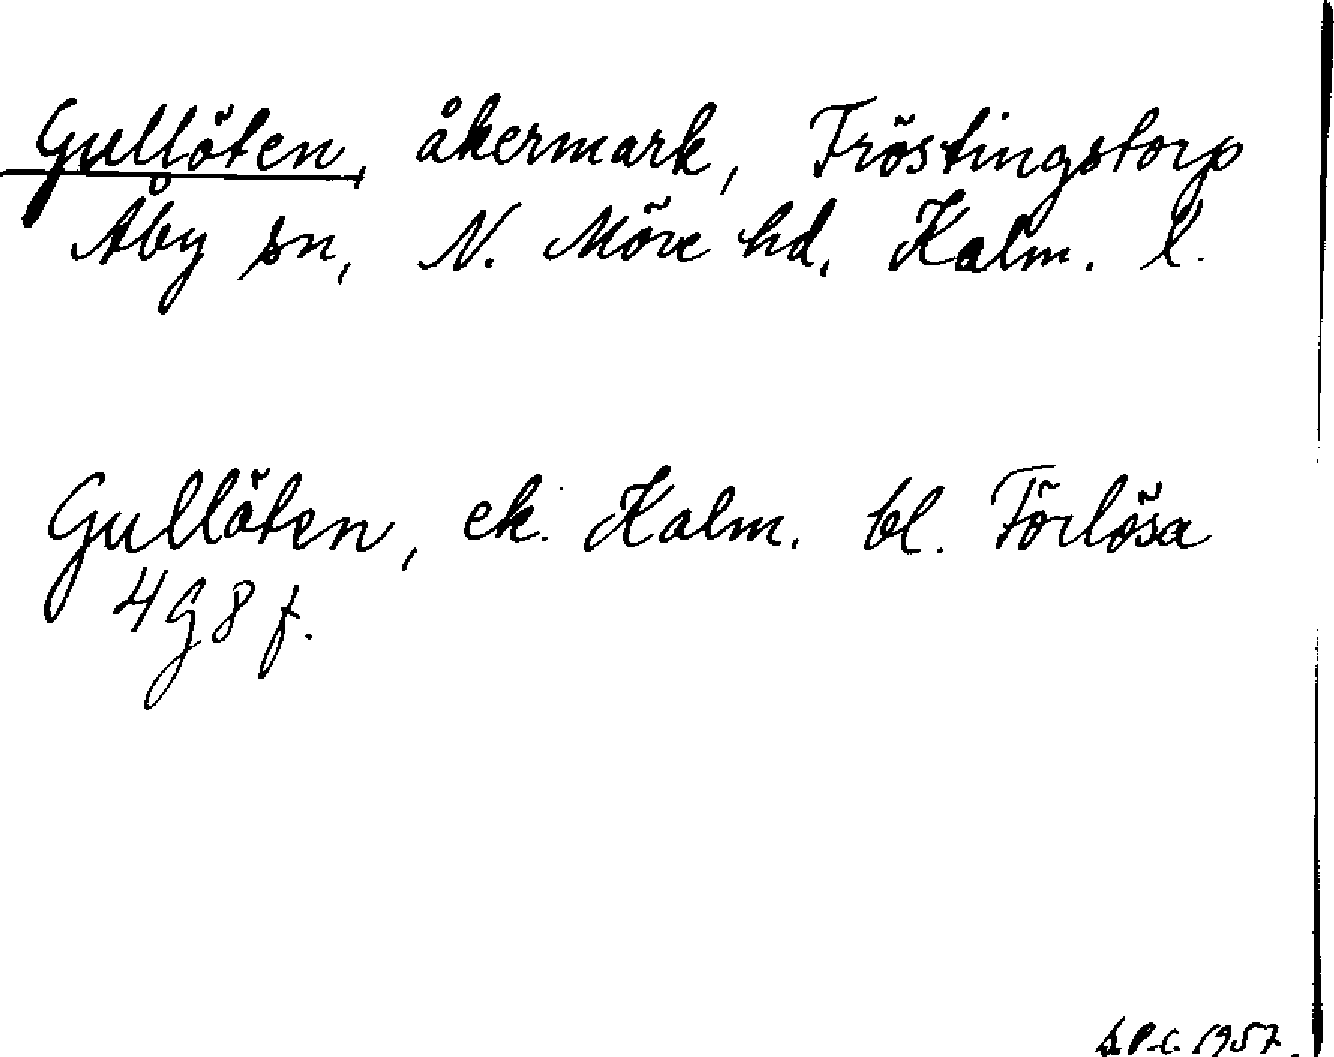 Gullöten, åkermark, Tröstingstorp
Åby sn, N. Möre hd, Kalm. l.
Gullöten, ek. Kalm. bl. Förlösa
4 g 8 f.
1957.